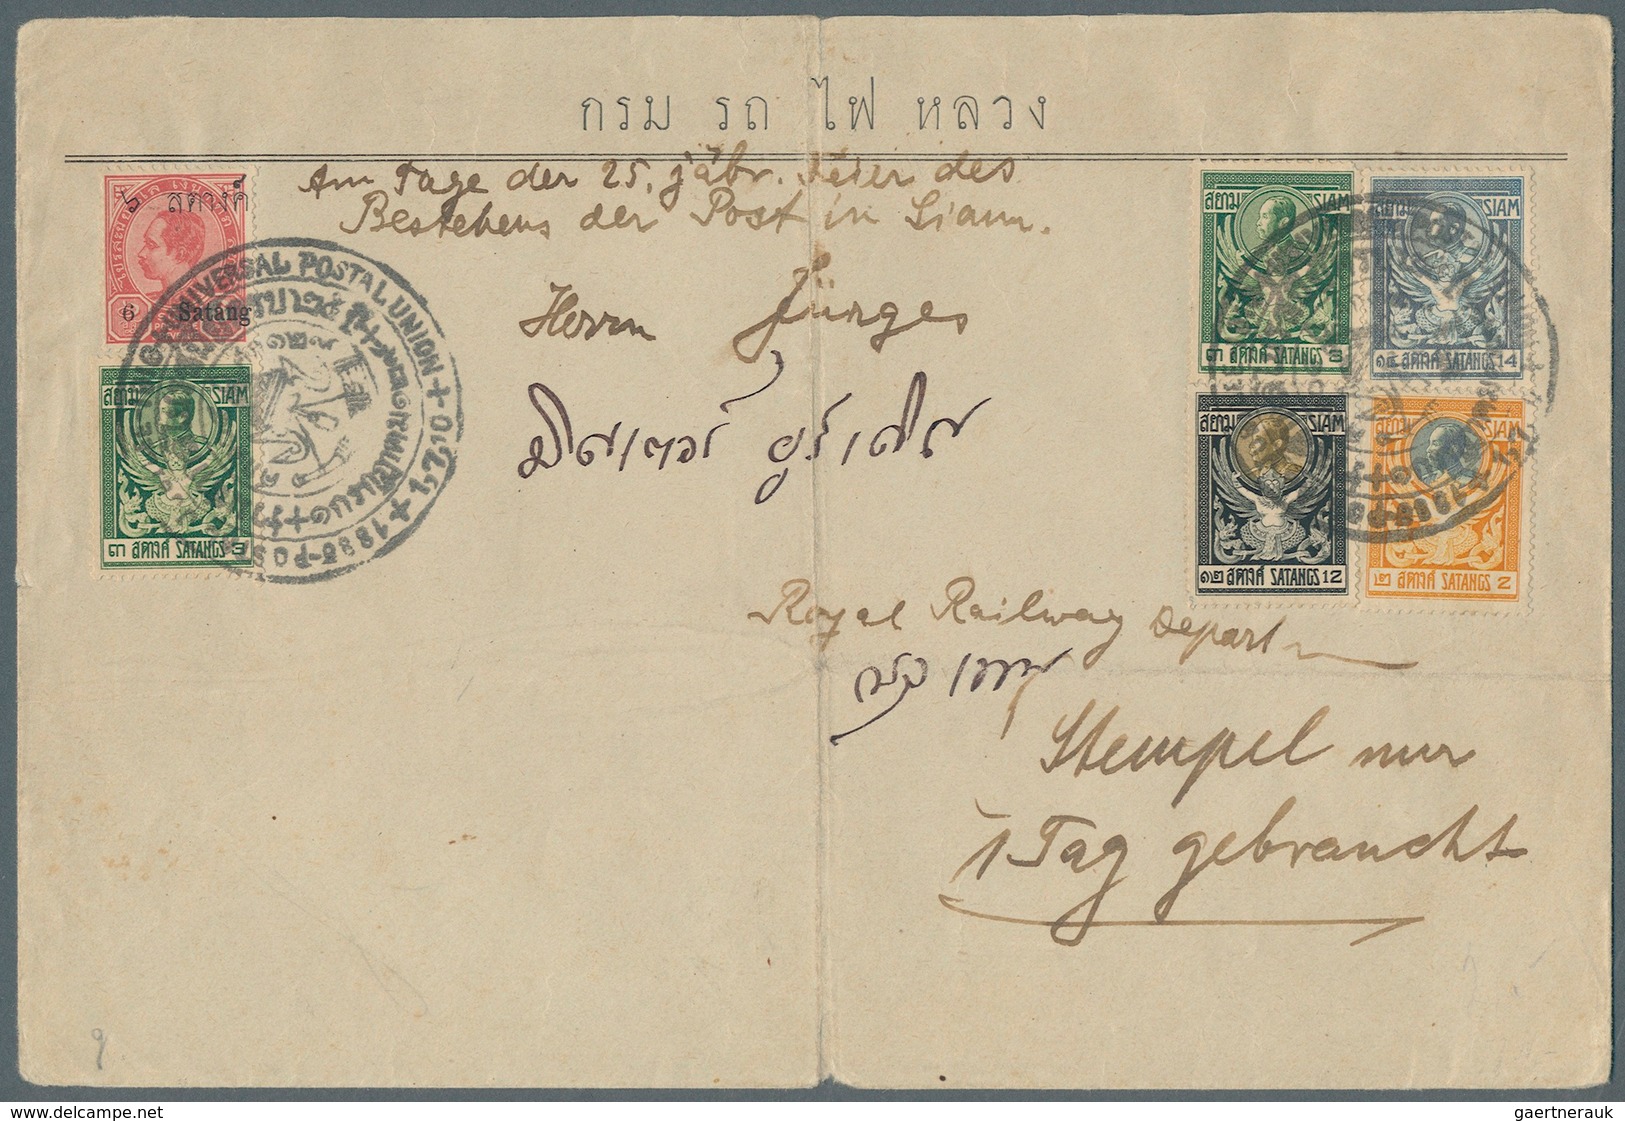 กรม รถ ไฟ หลวง
Am Tage der 25. jäbr. Feier des
Bestehens der Post in Siam.
๖ สตางค์
6 Satang
UNIVERSAL POSTAL UNION + 1,7,10 + 1885-POS
สยาม SIAM
๓ สตางค์ SATANGS 3
Herrn Jürges
มิสเตอร์ ยูรเฆ็ส
สยาม SIAM
๓ สตางค์ SATANGS 3
สยาม SIAM
๑๔ สตางค์ SATANGS 14
สยาม SIAM
๑๒ สตางค์ SATANGS 12
สยาม SIAM
๒ สตางค์ SATANGS 2
Royal Railway Depart
Stempel nur
1 Tag gebraucht
gaertnerauk